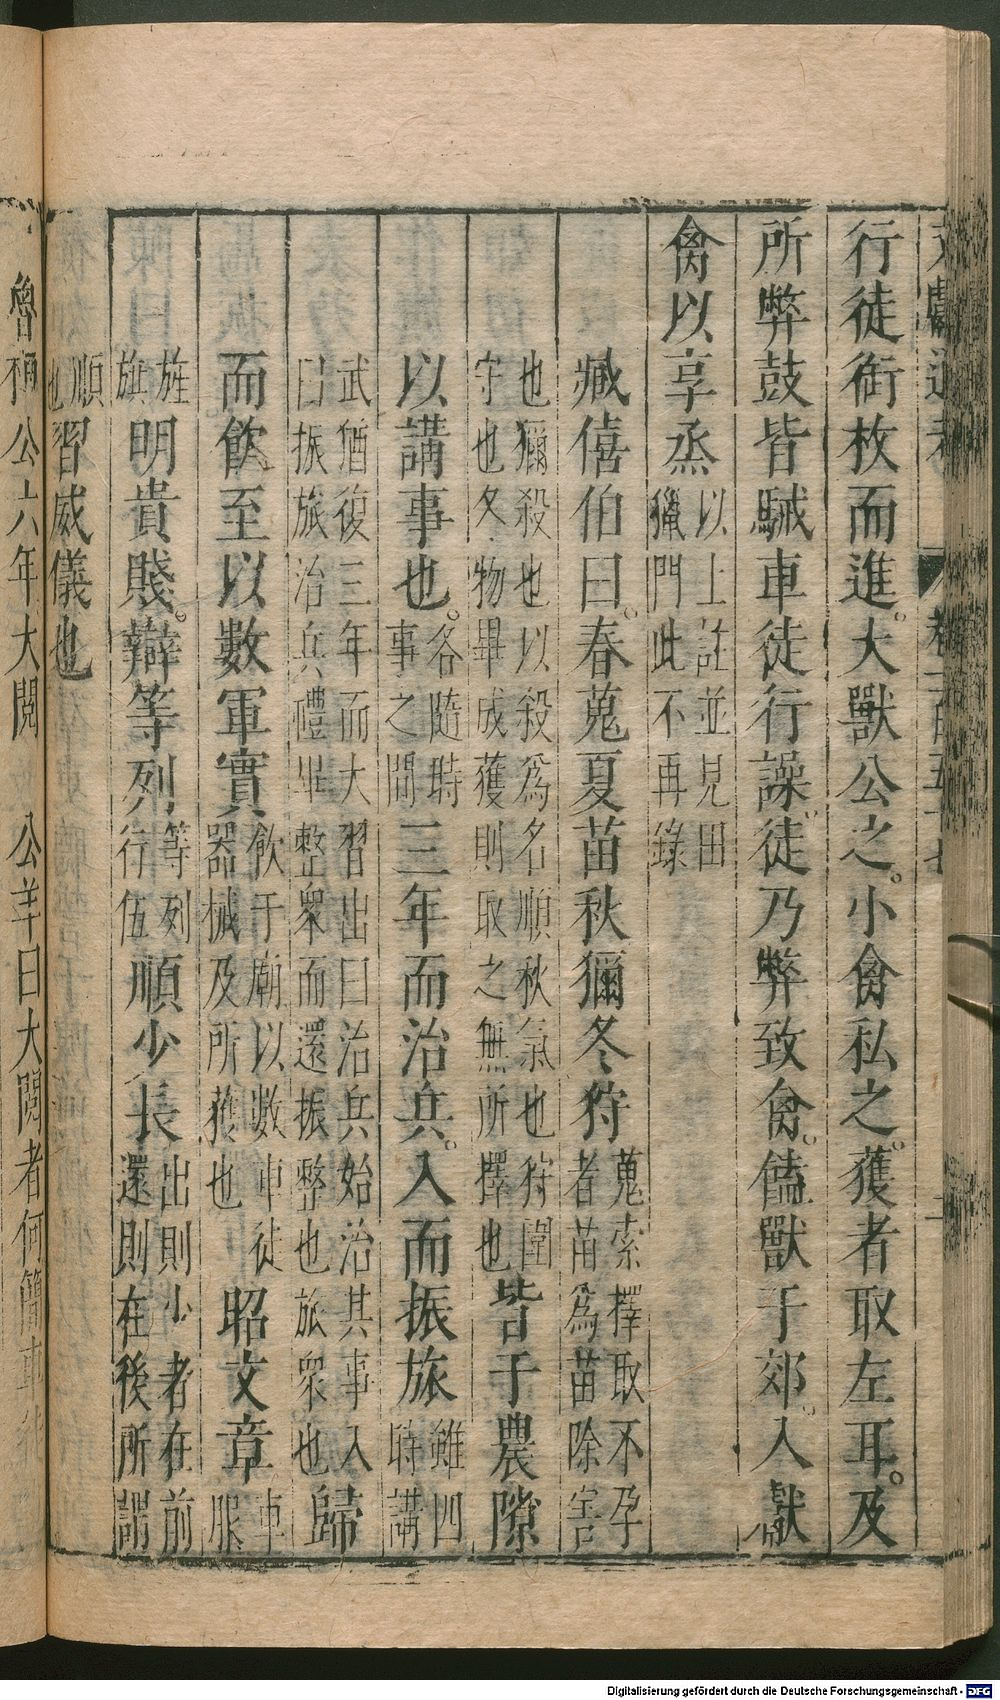 行徒銜枚而進。大獸公之。小禽私之。獲者取左耳。及
所弊鼓皆駴車徒行譟。徒乃弊致禽。饁獸于郊。入獻
禽以享烝以上註並見田
獵門此不再錄
臧僖伯曰。春蒐夏苗秋獮冬狩蒐索擇取不孕
者苗為苗除害
也獮殺也以殺爲名順秋氣也狩圍
守也冬物畢成獲則取之無所擇也皆于農隙
以講事也。各隨時
事之間三年而治兵。入而振旅雖四
時講
武猶復三年而大習出曰治兵始治其事入
曰振旅治兵禮畢整衆而還振整也旅衆也歸
而飲至以數軍實飲于廟以數車徒
器械及所獲也昭文章車
服
旌
旗明貴賤。辯等列等列
行伍順少長出則少者在前
還則在後所謂
順
也習威儀也
魯桓公六年大閱　公羊曰大閱者何簡車徒
Digitalisierung gefördert durch die Deutsche Forschungsgemeinschaft - DFG